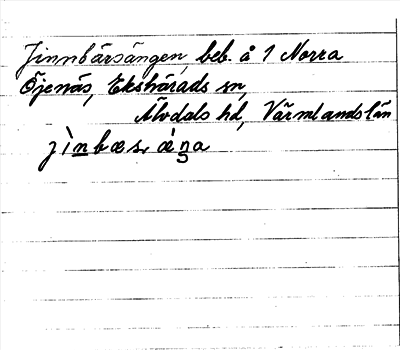 Jinnbärsängen, beb. å 1 Norra
Öjenäs, Ekshärads sn,
Älvdals hd, Värmlands län
jìnbæsˌæ̀ŋa